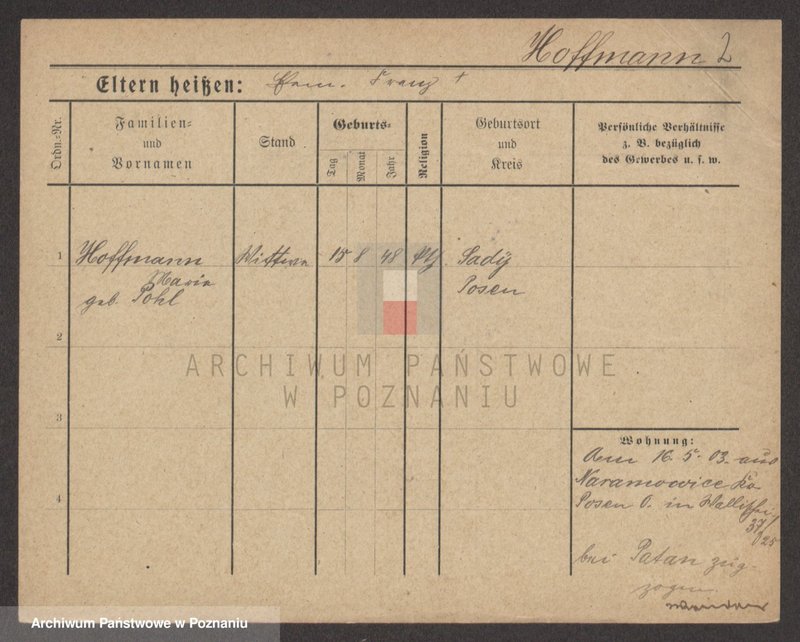 Hoffmann 2
Eltern heißen: Franz †
Ordn.-Nr.
Familien-
und
Vornamen
Stand
Geburts-
Tag
Monat
Jahr
Religion
Geburtsort
und
Kreis
Persönliche Verhältnisse
z. B. bezüglich
des Gewerbes u. s. w.
1 Hoffmann Wittwe 15 8 48 kth. Sady
Marie Posen
geb. Pohl
2
ARCHIWUM PAŃSTWOWE
W POZNANIU
3
Wohnung:
Am 16. 5. 03. aus
Naramowice Kr.
Posen O. in Wallischei
37/
4
bei Patan zug-
zogen.
wenden
Archiwum Państwowe w Poznaniu